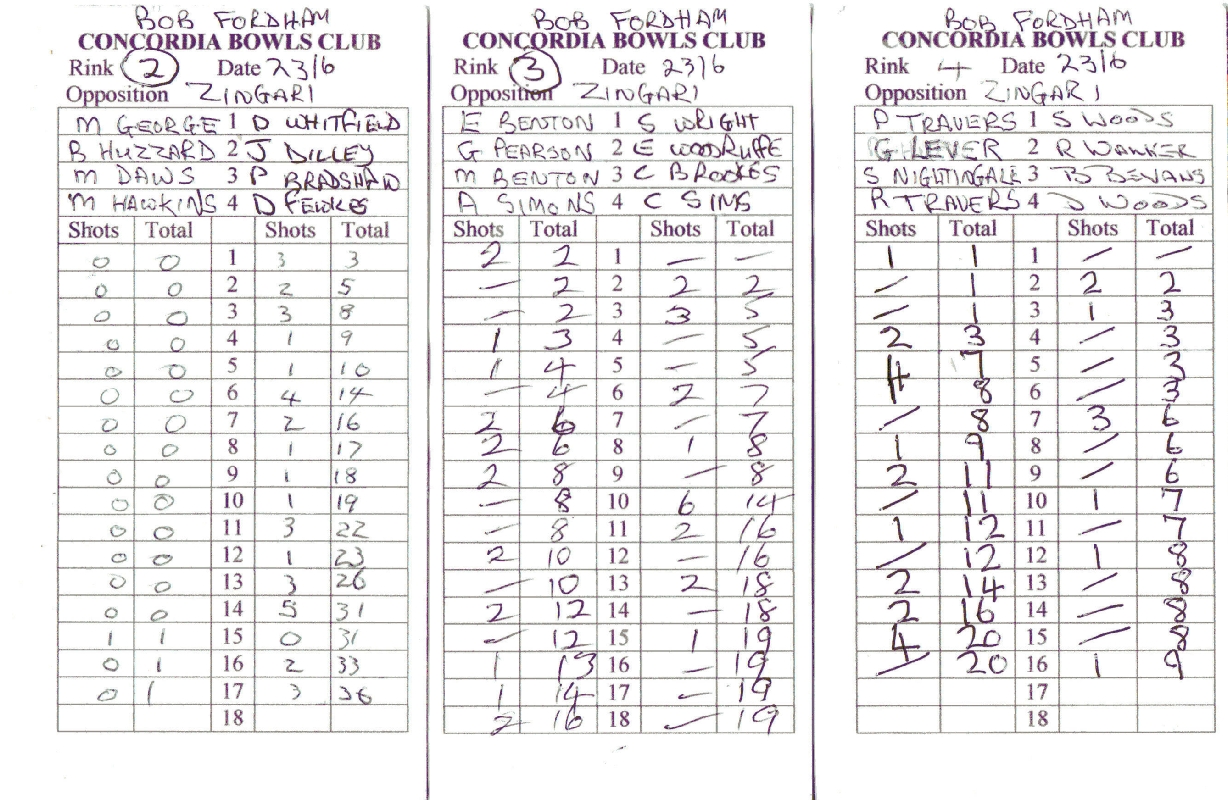 BOB FORDHAM
CONCORDIA BOWLS CLUB
Rink 2 Date 23/6
Opposition ZINGARI
M GEORGE 1 D WHITFIELD
B HUZZARD 2 J DILLEY
M DAWS 3 P BRADSHAW
M HAWKINS 4 D FEWKES
Shots Total Shots Total
0 0 1 3 3
0 0 2 2 5
0 0 3 3 8
0 0 4 1 9
0 0 5 1 10
0 0 6 4 14
0 0 7 2 16
0 0 8 1 17
0 0 9 1 18
0 0 10 1 19
0 0 11 3 22
0 0 12 1 23
0 0 13 3 26
0 0 14 5 31
1 1 15 0 31
0 1 16 2 33
0 1 17 3 36
18
BOB FORDHAM
CONCORDIA BOWLS CLUB
Rink 3 Date 23/6
Opposition ZINGARI
E BENTON 1 S WRIGHT
G PEARSON 2 E WOODRUFFE
M BENTON 3 C BROOKES
A SIMONS 4 C SIMS
Shots Total Shots Total
2 2 1 — —
— 2 2 2 2
— 2 3 3 5
1 3 4 — 5
1 4 5 — 5
— 4 6 2 7
2 6 7 — 7
2 6 8 1 8
2 8 9 — 8
— 8 10 6 14
— 8 11 2 16
2 10 12 — 16
— 10 13 2 18
2 12 14 — 18
— 12 15 1 19
1 13 16 — 19
1 14 17 — 19
2 16 18 — 19
BOB FORDHAM
CONCORDIA BOWLS CLUB
Rink 4 Date 23/6
Opposition ZINGARI
P TRAVERS 1 S WOODS
G LEVER 2 R WALKER
S NIGHTINGALE 3 B BEVANS
R TRAVERS 4 D WOODS
Shots Total Shots Total
1 1 1 / /
/ 1 2 2 2
/ 1 3 1 3
2 3 4 / 3
4 7 5 / 3
8 6 / 3
/ 8 7 3 6
1 9 8 / 6
2 11 9 / 6
/ 11 10 1 7
1 12 11 / 7
/ 12 12 1 8
2 14 13 / 8
2 16 14 / 8
4 20 15 / 8
/ 20 16 1 9
17
18